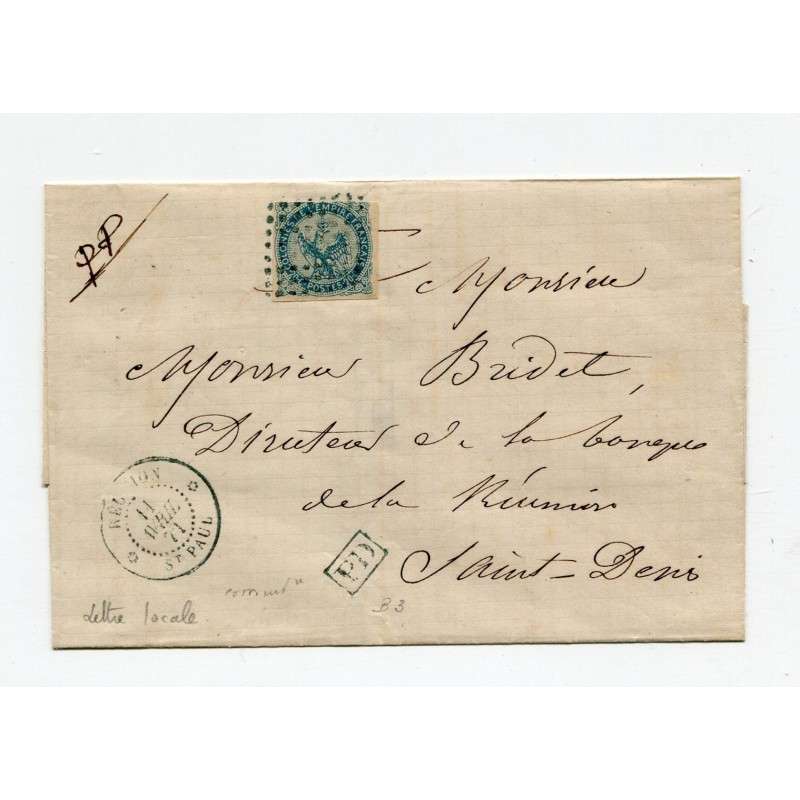 PP
COLONIES DE L'EMPIRE FRANÇAIS
POSTES
Monsieur
Monsieur Bridet,
Directeur de la banque
de la Réunion
Saint-Denis
RÉUNION
11
AVRIL
71
ST PAUL
PD
Lettre locale
B3